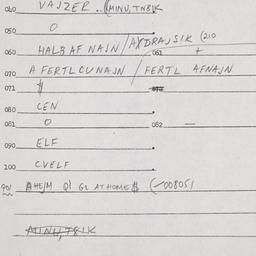 040 VAJZER .. (MINU, TN8IK
050 O
060 HALB AF NAJN / AJDRAJSIK (210
061 +
070 A FERTL CU NAJN / FERTL AFNAJN
071 $ 072
080 CEN
081 O 082 —
090 ELF
100 CVELF
901 AHEJM Q! GL AT HOME $ (-008051